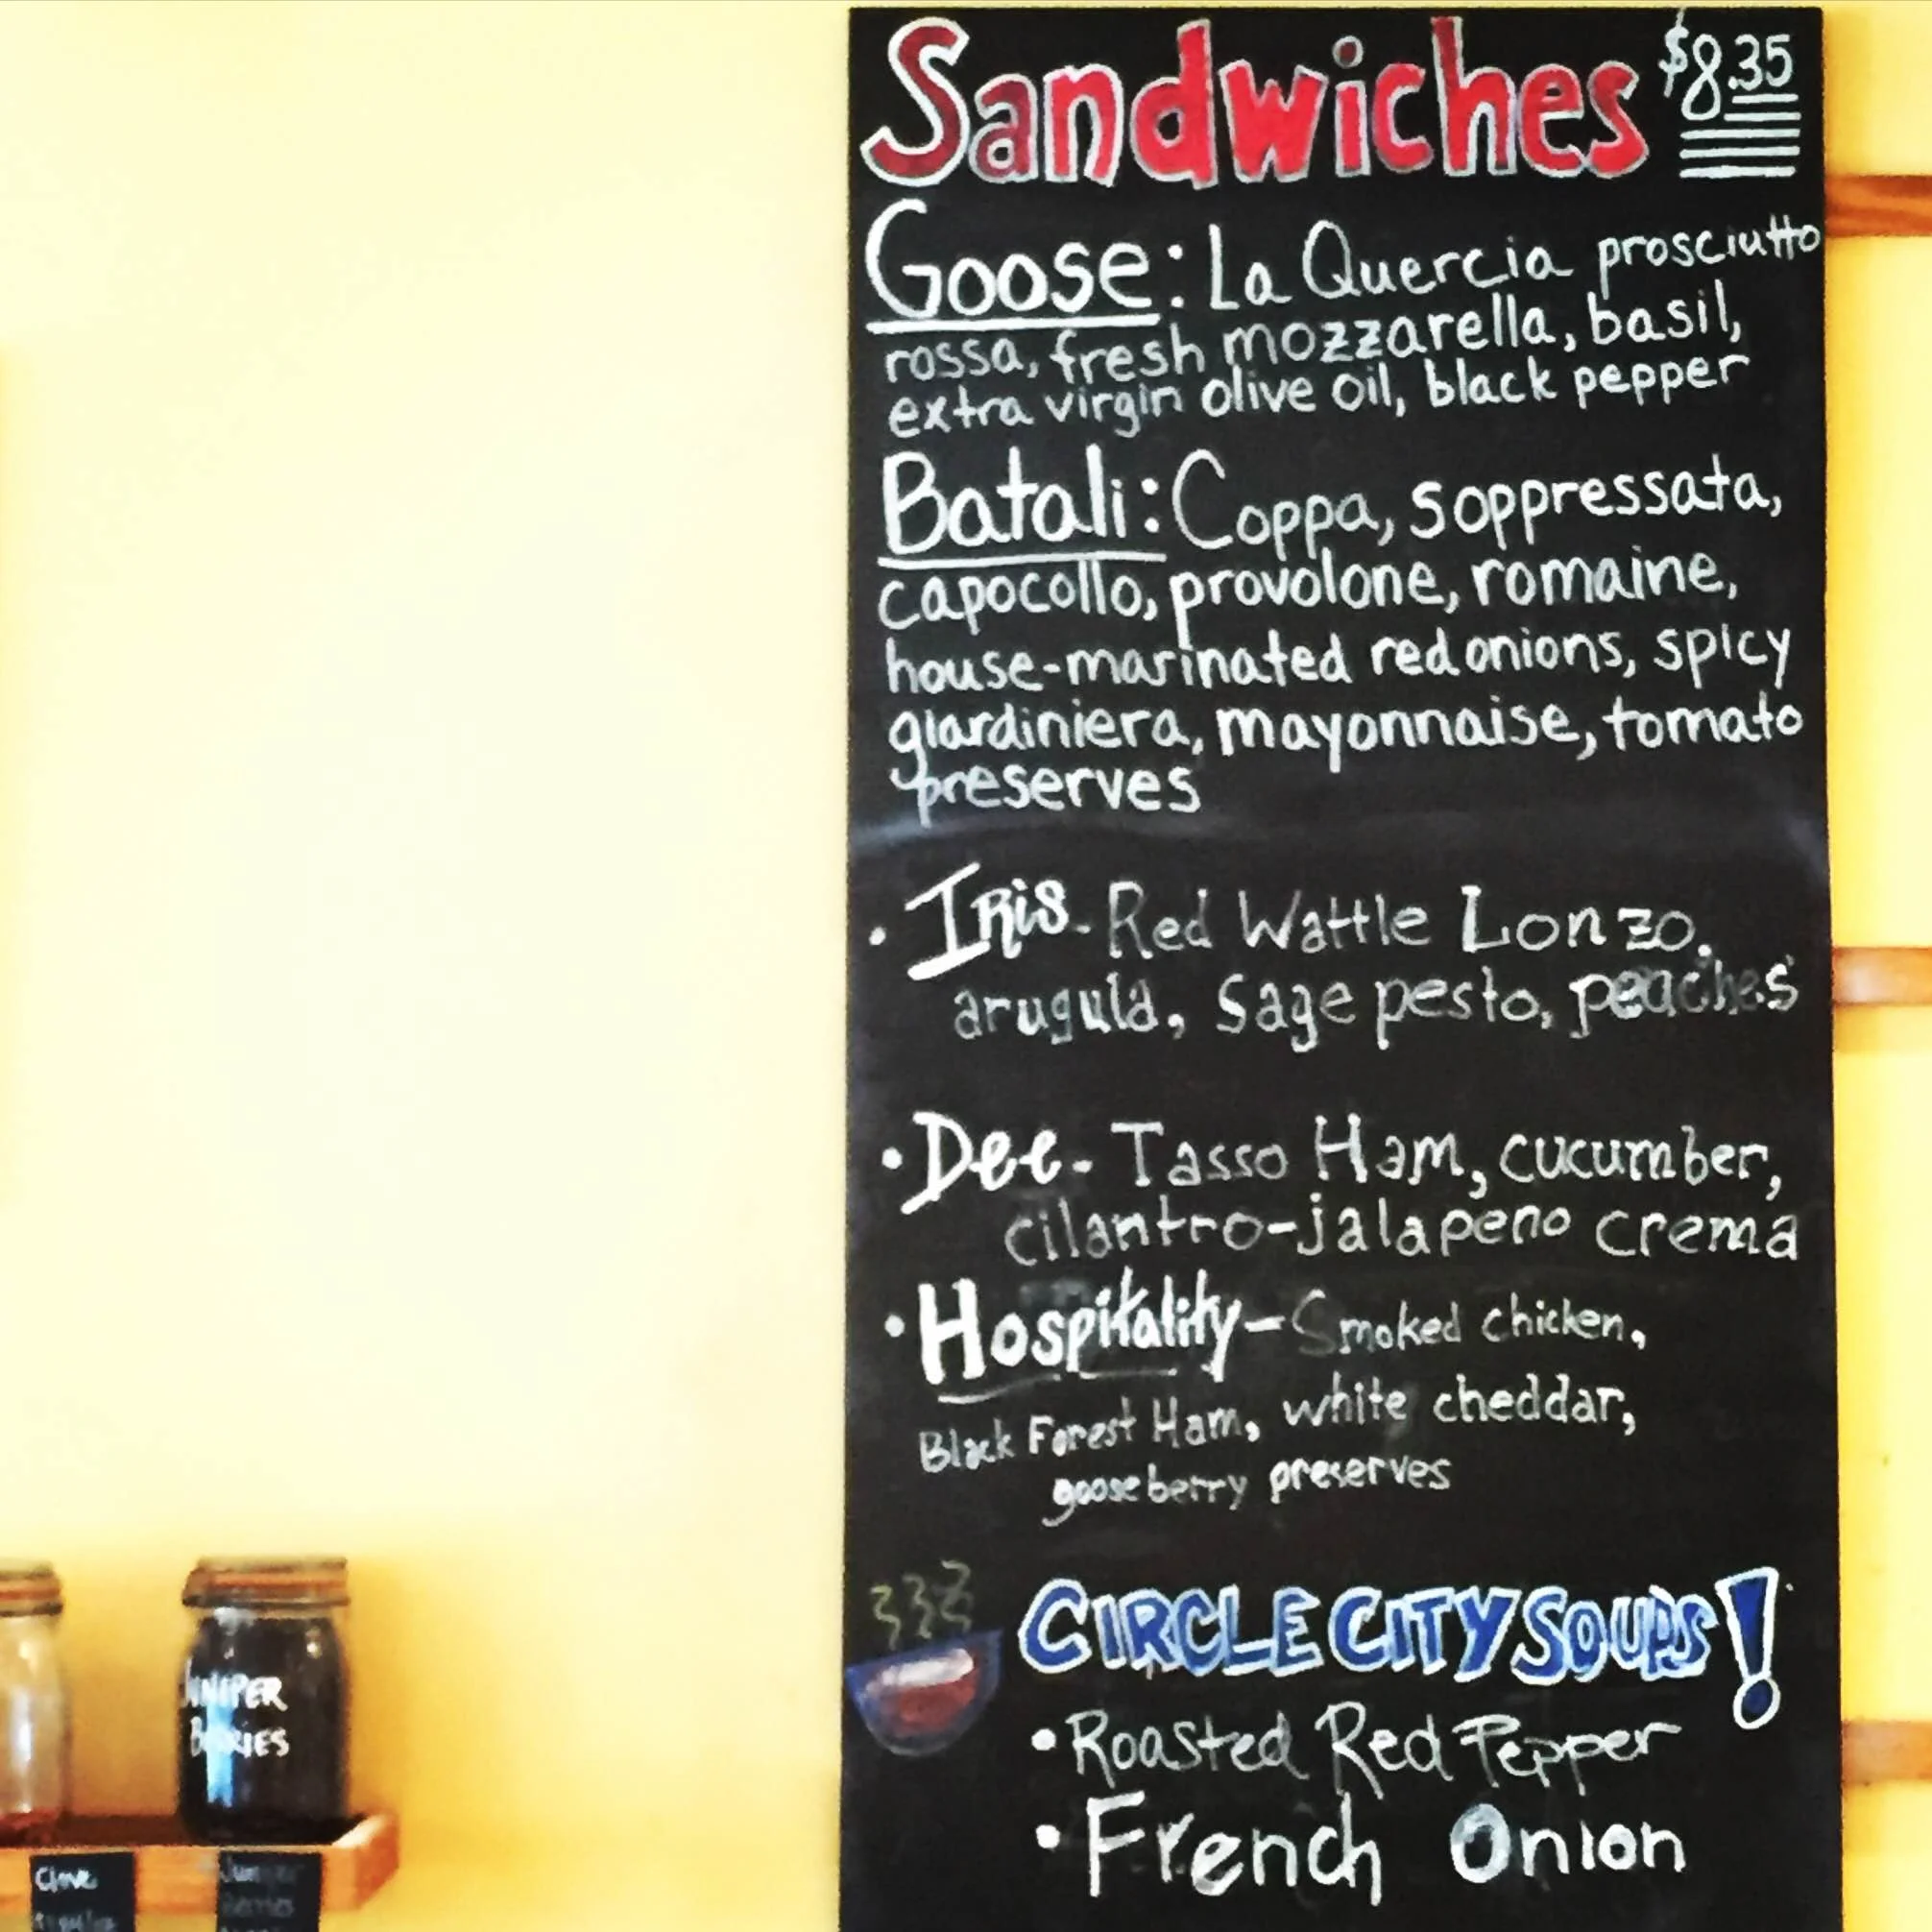 Sandwiches $8.35
Goose: La Quercia prosciutto
rossa, fresh mozzarella, basil,
extra virgin olive oil, black pepper
Batali: Coppa, soppressata,
capocollo, provolone, romaine,
house-marinated red onions, spicy
giardiniera, mayonnaise, tomato
preserves
• Iris- Red Wattle Lonzo,
arugula, Sage pesto, peaches
• Dee- Tasso Ham, cucumber,
cilantro-jalapeno crema
• Hospitality - Smoked chicken,
Black Forest Ham, white cheddar,
gooseberry preserves
CIRCLE CITY SOUPS!
• Roasted Red Pepper
• French Onion
JUNIPER
BERRIES
Clove
Juniper
Berries